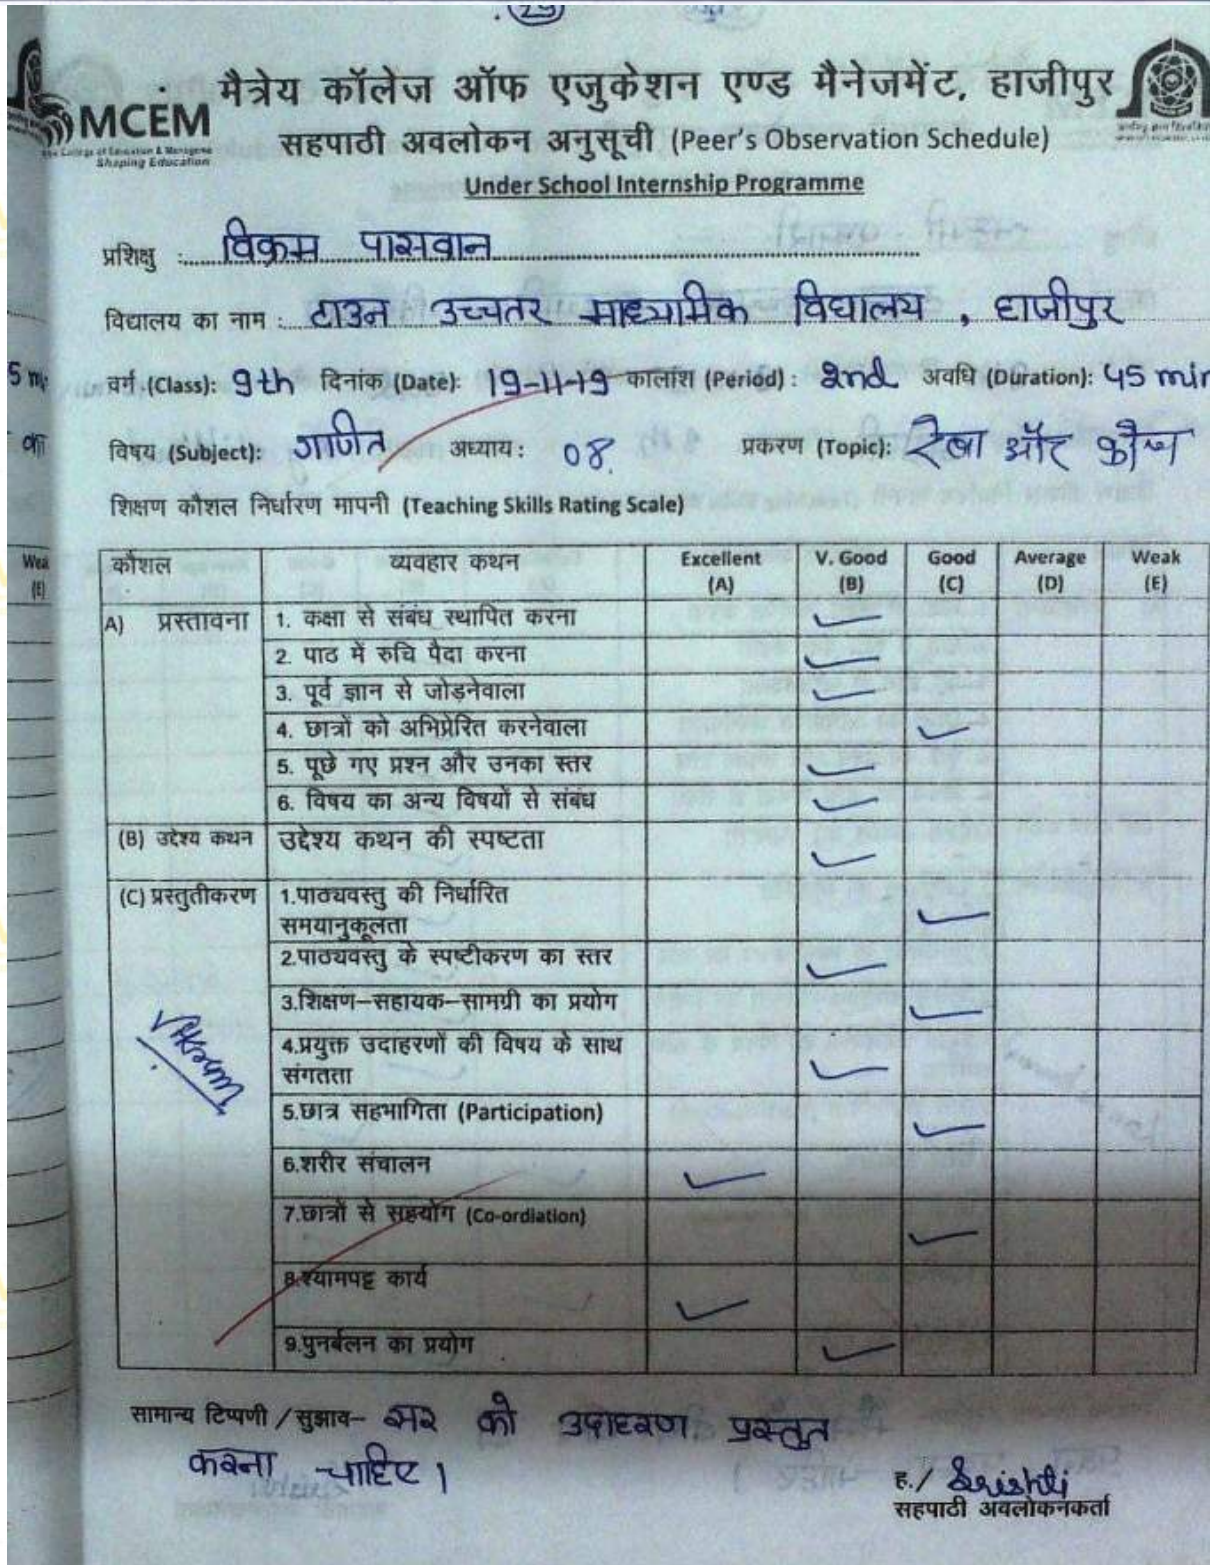 29
MCEM
Shaping Education
मैत्रेय कॉलेज ऑफ एजुकेशन एण्ड मैनेजमेंट, हाजीपुर
सहपाठी अवलोकन अनुसूची (Peer's Observation Schedule)
Under School Internship Programme
प्रशिक्षु : विक्रम पासवान
विद्यालय का नाम : टाउन उच्चतर माध्यमिक विद्यालय , हाजीपुर
वर्ग (Class): 9th दिनांक (Date): 19-11-19 कालांश (Period) : 2nd अवधि (Duration): 45 min
विषय (Subject): गणित अध्याय : 08. प्रकरण (Topic): रेखा और कोण
शिक्षण कौशल निर्धारण मापनी (Teaching Skills Rating Scale)
कौशल व्यवहार कथन Excellent (A) V. Good (B) Good (C) Average (D) Weak (E)
A) प्रस्तावना 1. कक्षा से संबंध स्थापित करना
2. पाठ में रुचि पैदा करना
3. पूर्व ज्ञान से जोड़नेवाला
4. छात्रों को अभिप्रेरित करनेवाला
5. पूछे गए प्रश्न और उनका स्तर
6. विषय का अन्य विषयों से संबंध
(B) उद्देश्य कथन उद्देश्य कथन की स्पष्टता
(C) प्रस्तुतीकरण 1.पाठ्यवस्तु की निर्धारित
समयानुकूलता
2.पाठ्यवस्तु के स्पष्टीकरण का स्तर
3.शिक्षण–सहायक–सामग्री का प्रयोग
Vikram
4.प्रयुक्त उदाहरणों की विषय के साथ
संगतता
5.छात्र सहभागिता (Participation)
6.शरीर संचालन
7.छात्रों से सहयोग (Co-ordiation)
8.श्यामपट्ट कार्य
9.पुनर्बलन का प्रयोग
सामान्य टिप्पणी / सुझाव– सर को उदाहरण प्रस्तुत
करना चाहिए।
ह./ Srishti
सहपाठी अवलोकनकर्ता